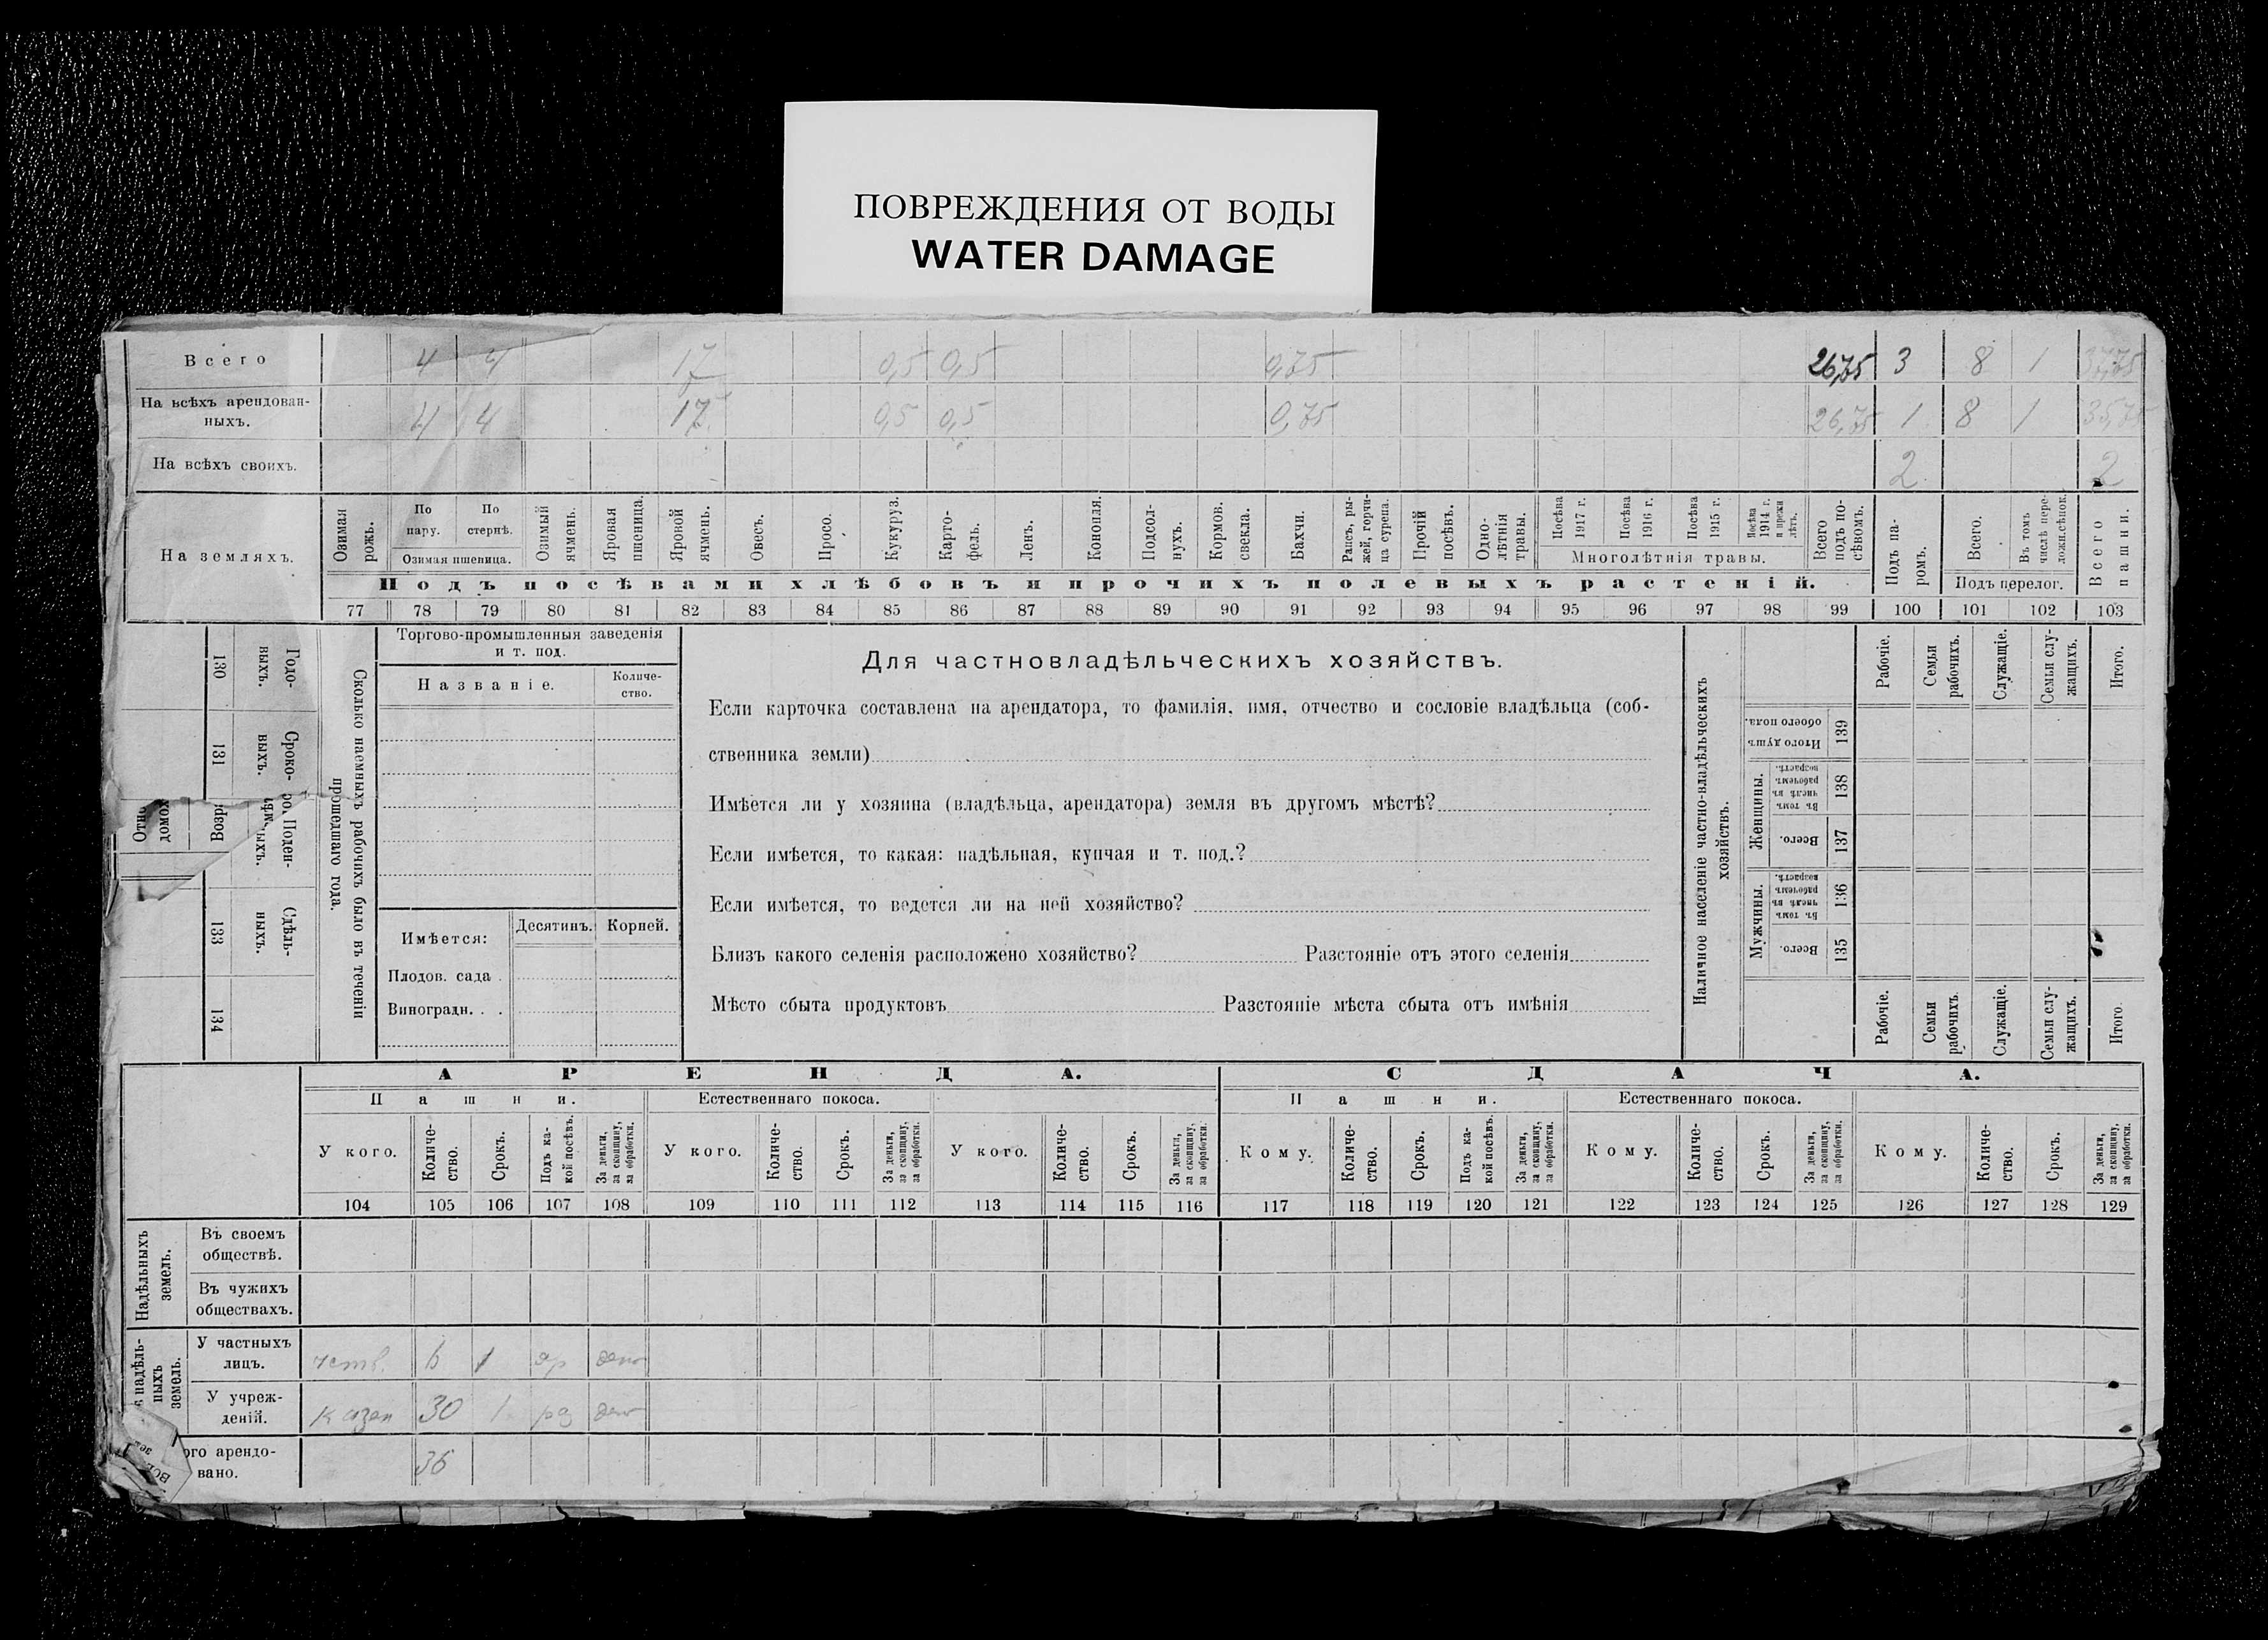 ПОВРЕЖДЕНИЯ ОТ ВОДЫ
WATER DAMAGE
Всего 4 4 17 0,5 0,5 0,75 26,75 3 8 1 37,75
На всѣхъ арендован-
ныхъ. 4 4 17 0,5 0,5 0,75 26,75 1 8 1 35,75
На всѣхъ своихъ. 2 2
На земляхъ.
Озимая рожь.
По пару.
По стернѣ.
Озимая пшеница.
Озимый ячмень.
Яровая пшеница.
Яровой ячмень.
Овесъ.
Просо.
Кукуруз.
Карто-
фель.
Ленъ.
Конопля.
Подсол-
нухъ.
Кормов.
свекла.
Бахчи.
Рапсъ, ры-
жей, горчи-
ца сурепа.
Прочій
посѣвъ.
Одно-
лѣтнія
травы.
Посѣва
1917 г.
Посѣва
1916 г.
Посѣва
1915 г.
Посѣва
1914 г.
и прежн
лѣтъ.
Многолѣтнія травы.
Всего
подъ по-
сѣвомъ.
Подъ па-
ромъ.
Всего.
Въ томъ
числѣ пере-
ложн.сѣнок.
Подъ перелог.
Всего
пашни.
Подъ посѣвами хлѣбовъ и прочихъ полевыхъ растеній.
77 78 79 80 81 82 83 84 85 86 87 88 89 90 91 92 93 94 95 96 97 98 99 100 101 102 103
130
Годо-
выхъ.
131
Сроко-
выхъ.
Отно
домох
Возр
Поден-
ыхъ.
133
Сдѣль-
ныхъ.
134
Сколько наемныхъ рабочихъ было въ теченіи
прошедшаго года.
Торгово-промышленныя заведенія
и т. под.
Названіе.
Количе-
ство.
Имѣется:
Десятинъ.
Корней.
Плодов. сада .
Виноградн. . .
Для частновладѣльческихъ хозяйствъ.
Если карточка составлена на арендатора, то фамилія, имя, отчество и сословіе владѣльца (соб-
ственника земли)
Имѣется ли у хозяина (владѣльца, арендатора) земля въ другомъ мѣстѣ?
Если имѣется, то какая: надѣльная, купчая и т. под.?
Если имѣется, то ведется ли на ней хозяйство?
Близъ какого селенія расположено хозяйство? Разстояніе отъ этого селенія
Мѣсто сбыта продуктовъ Разстояніе мѣста сбыта отъ имѣнія
Наличное населеніе частно-владѣльческихъ
хозяйствъ.
Рабочіе.
Семьи
рабочихъ.
Служащіе.
Семьи слу-
жащихъ.
Итого.
Итого душъ
обоего пола.
139
Женщины.
Въ томъ
числѣ въ
рабочемъ
возрастѣ.
138
Всего.
137
Мужчины.
Въ томъ
числѣ въ
рабочемъ
возрастѣ.
136
Всего.
135
Рабочіе.
Семьи
рабочихъ.
Служащіе.
Семьи слу-
жащихъ.
Итого
АРЕНДА. СДАЧА.
Пашни. Естественнаго покоса. Пашни. Естественнаго покоса.
У кого.
Количе-
ство.
Срокъ.
Подъ ка-
кой посѣвъ.
За деньги,
за скопщину,
за обработки.
У кого.
Количе-
ство.
Срокъ.
За деньги,
за скопщину,
за обработки.
У кого.
Количе-
ство.
Срокъ.
За деньги,
за скопщину,
за обработки.
Кому.
Количе-
ство.
Срокъ.
Подъ ка-
кой посѣвъ.
За деньги,
за скопщину,
за обработки.
Кому.
Количе-
ство.
Срокъ.
За деньги,
за скопщину,
за обработки.
Кому.
Количе-
ство.
Срокъ.
За деньги,
за скопщину,
за обработки.
104 105 106 107 108 109 110 111 112 113 114 115 116 117 118 119 120 121 122 123 124 125 126 127 128 129
Надѣльныхъ
земель.
Въ своемъ
обществѣ.
Въ чужихъ
обществахъ.
надѣль-
ныхъ
земель.
У частныхъ
лицъ. 6 1 яр ден
У учреж-
деній. казен 30 1 ден
ого арендо-
вано. 36